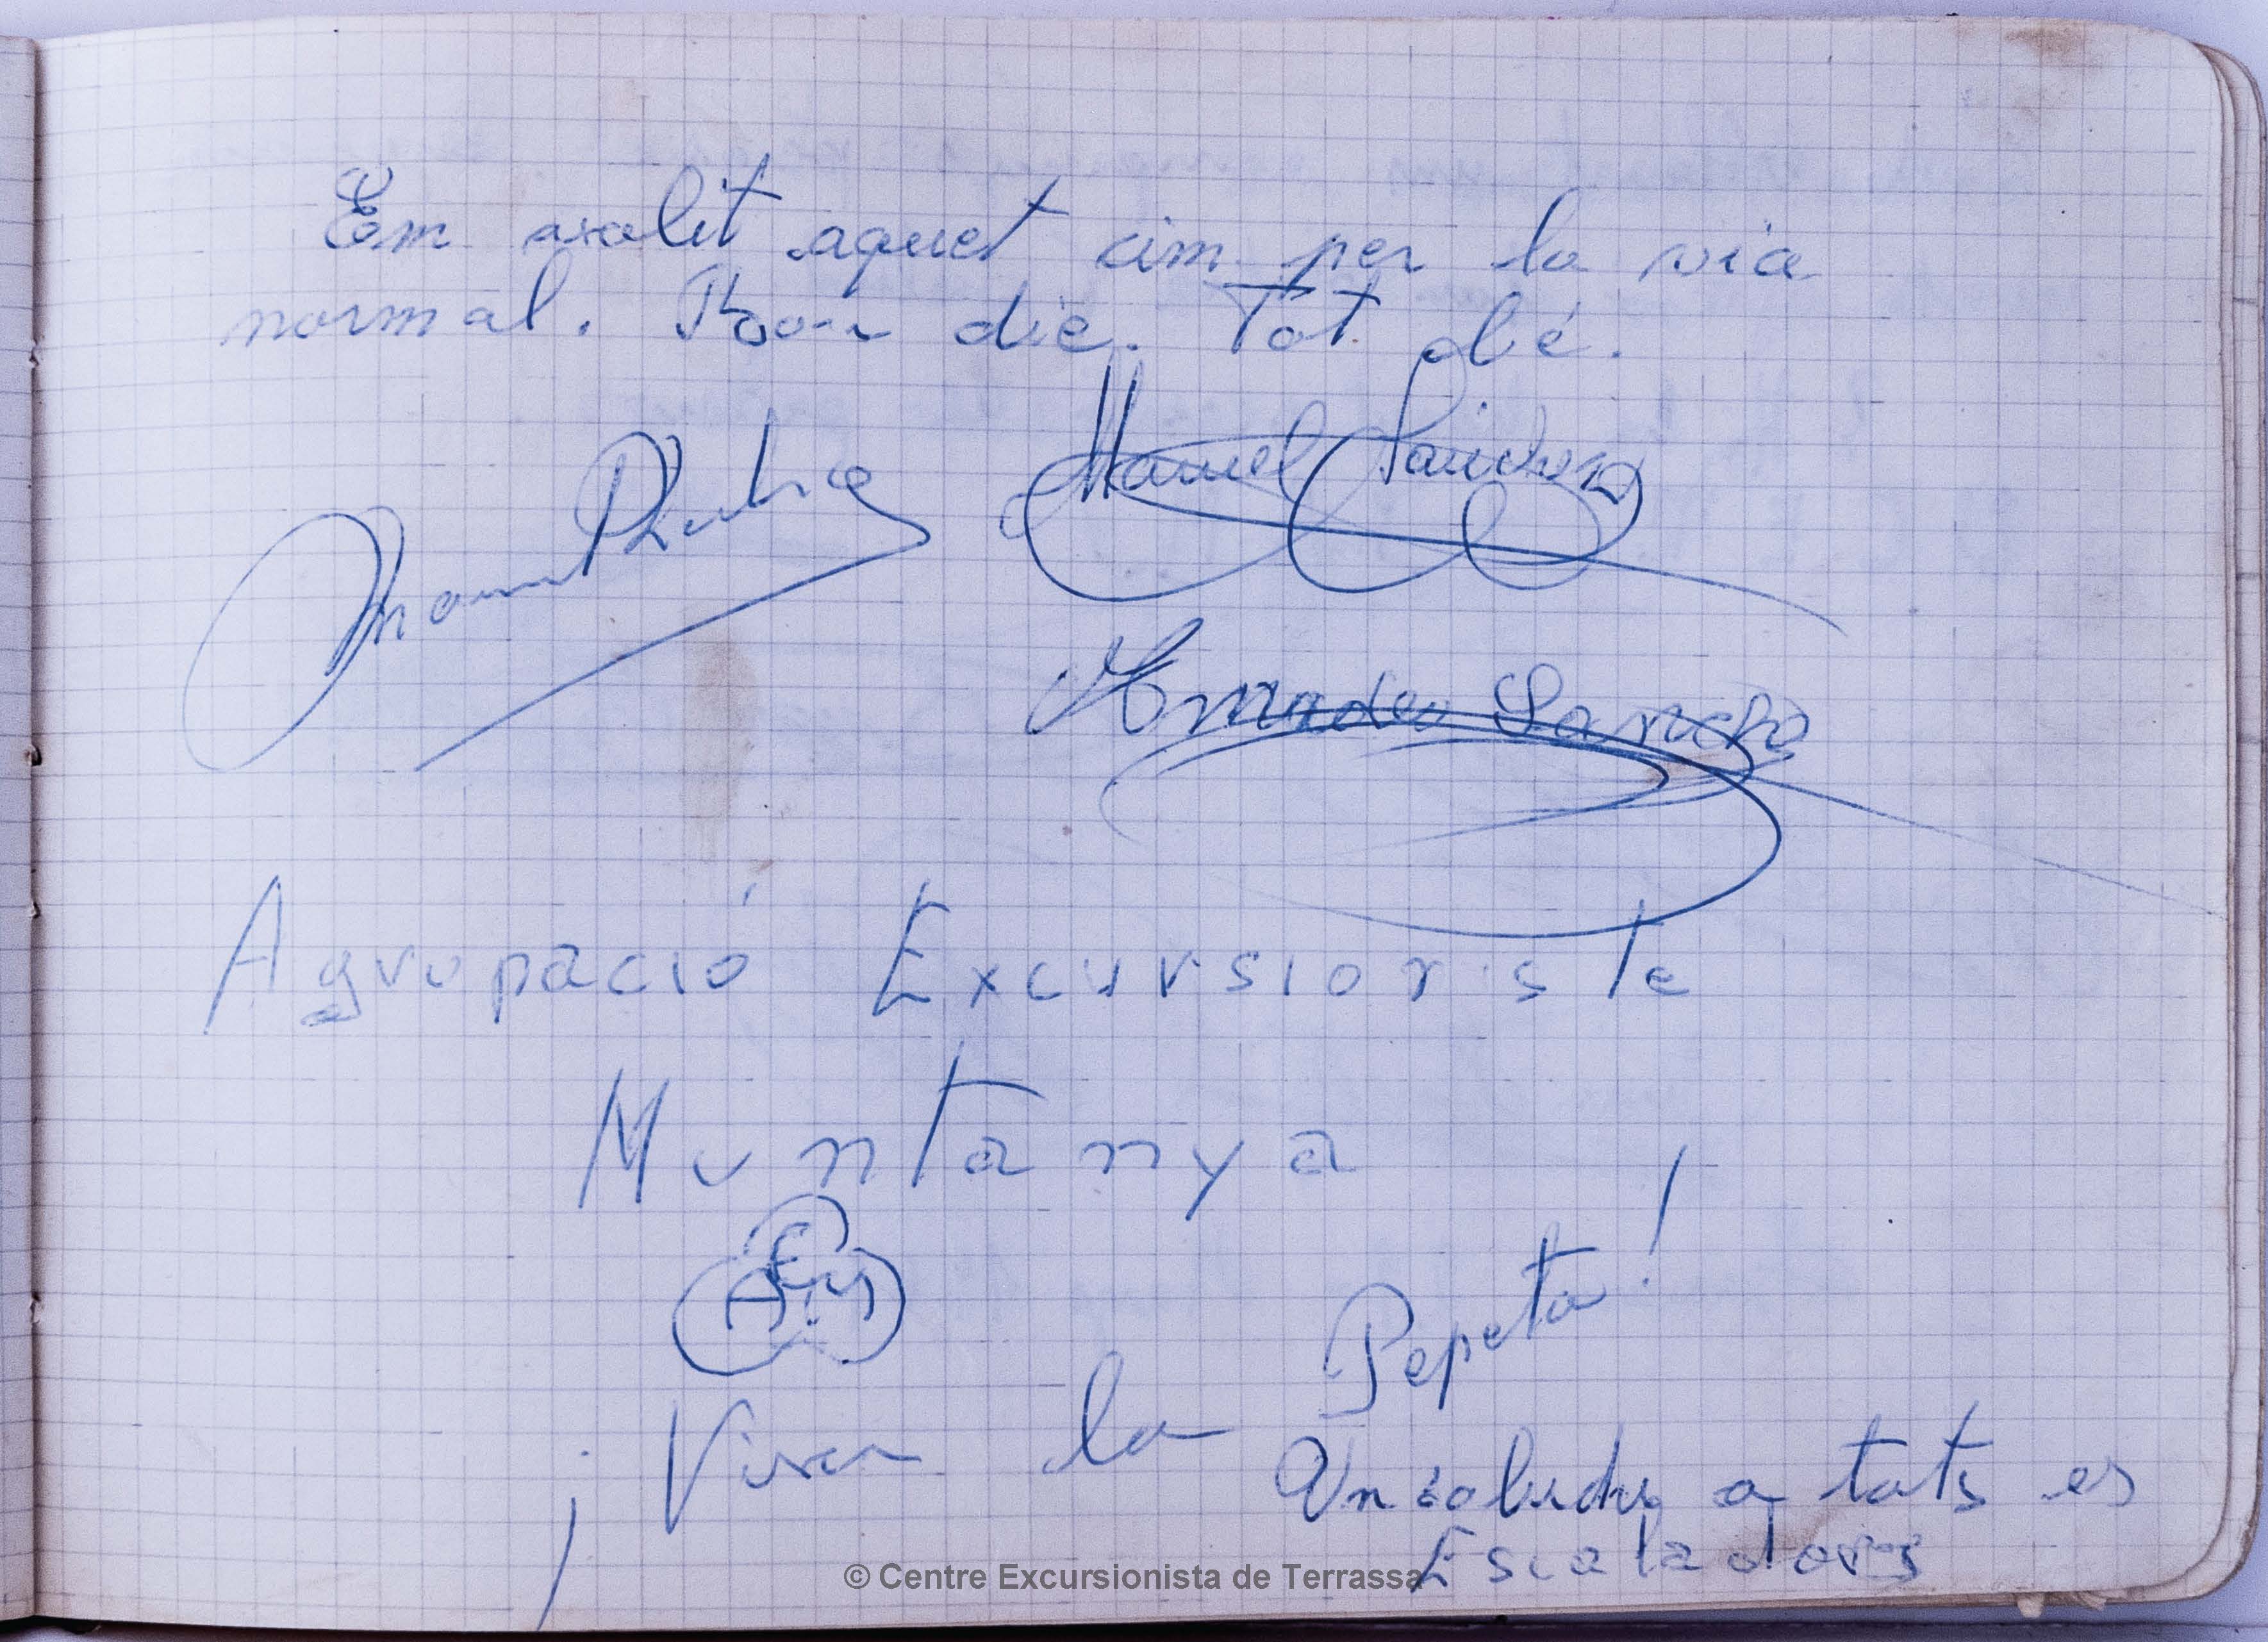 Em asolit aquet cim per la via
normal. Bon die. Tot bé.
Manuel Sanchez
Amadeo Sanchez
Agrupació Excursioniste
Muntanya
A.E.M
¡Visca la Pepeta!
Un saludu a tots es
Escaladors
© Centre Excursionista de Terrassa